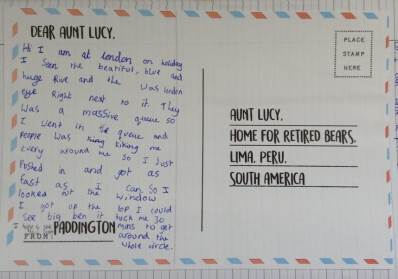 DEAR AUNT LUCY,
Hi I am at london on holiday
I Seen the beatiful, blue and
huge Rive and the Was london
eye Right next to it. They
Was a massive queue so
I went in the queue and
People Was kiking me
every around me so I Just
Pushed in and got as
fast as I can. So I
looked out the window
I got up the top I could
See big ben it tuck me 30
mins to get
around the
whole circle.
FROM, PADDINGTON
PLACE
STAMP
HERE
AUNT LUCY,
HOME FOR RETIRED BEARS,
LIMA, PERU,
SOUTH AMERICA